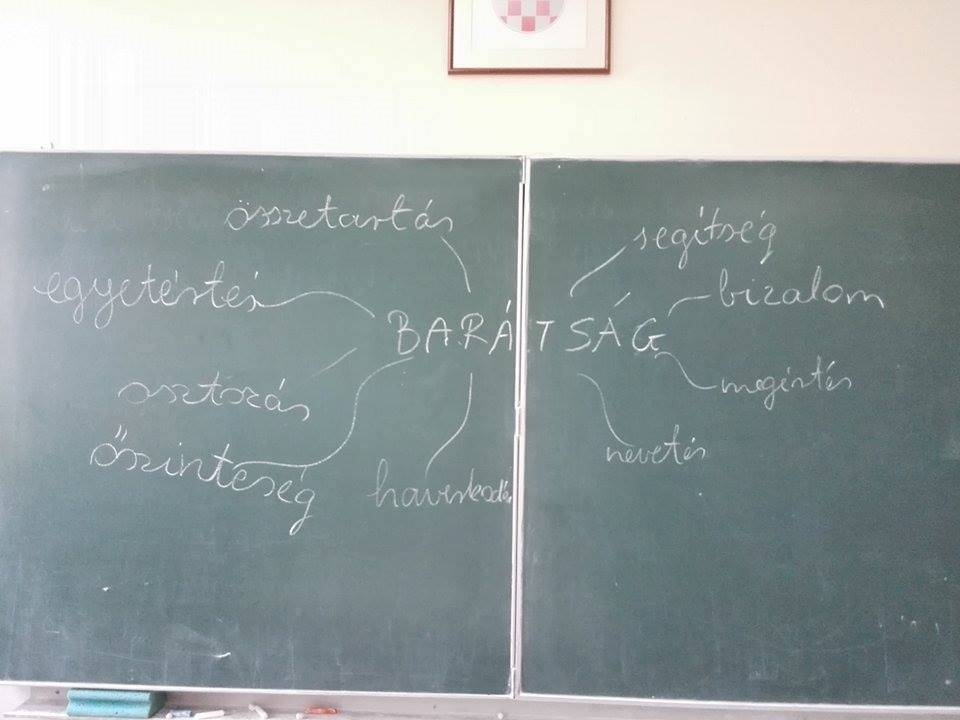 összetartás
segítség
egyetértés
bizalom
BARÁTSÁG
osztozás
megértés
őszinteség
nevetés
haverkodás